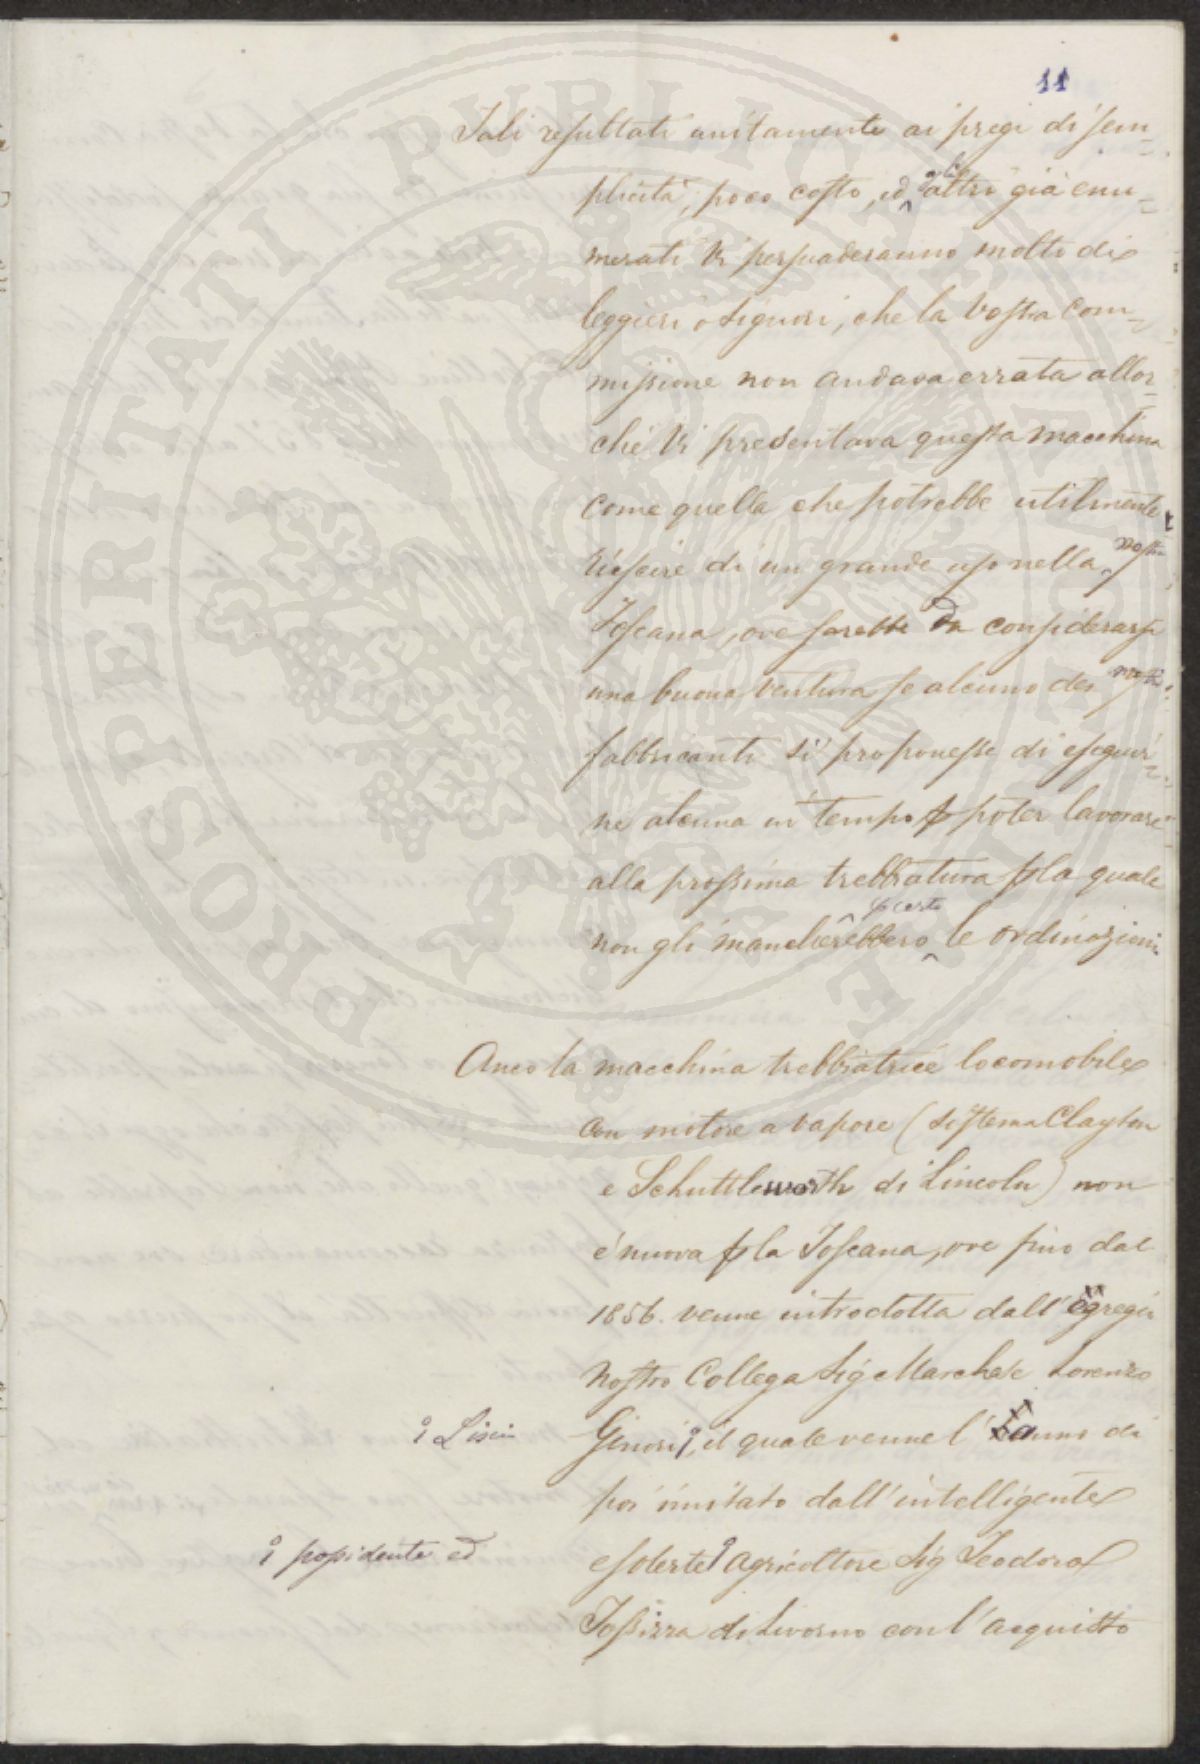 11
Tali resultati unitamente ai pregi di sem-
plicità, poco costo, ed altri già enu-
merati Vi persuaderanno molto di
leggieri o Signori, che la Vostra Com-
missione non andava errata allor-
chè Vi presentava questa macchina
come quella che potrebbe utilmente
riescire di un grande uso nella nostra
Toscana, ove sarebbe da considerarsi
una buona ventura se alcuno dei nostri
fabbricanti si proponesse di eseguir-
ne alcuna in tempo p poter lavorare
alla prossima trebbiatura p la quale
non gli mancherebbero p certo le ordinazioni.
Anco la macchina trebbiatrice locomobile
con motore a vapore (sistema Clayton
e Schuttleworth di Lincoln) non
è nuova p la Toscana, ove fino dal
1856. venne introdotta dall' egregio
nostro Collega Sig Marchese Lorenzo
Ginori, il quale venne l' anno di
Lisci
poi imitato dall' intelligente
e solerte agricoltore Sig Teodoro
possidente ed
Tossizza di Livorno con l' acquisto
PROSPERITATI PUBLICAE